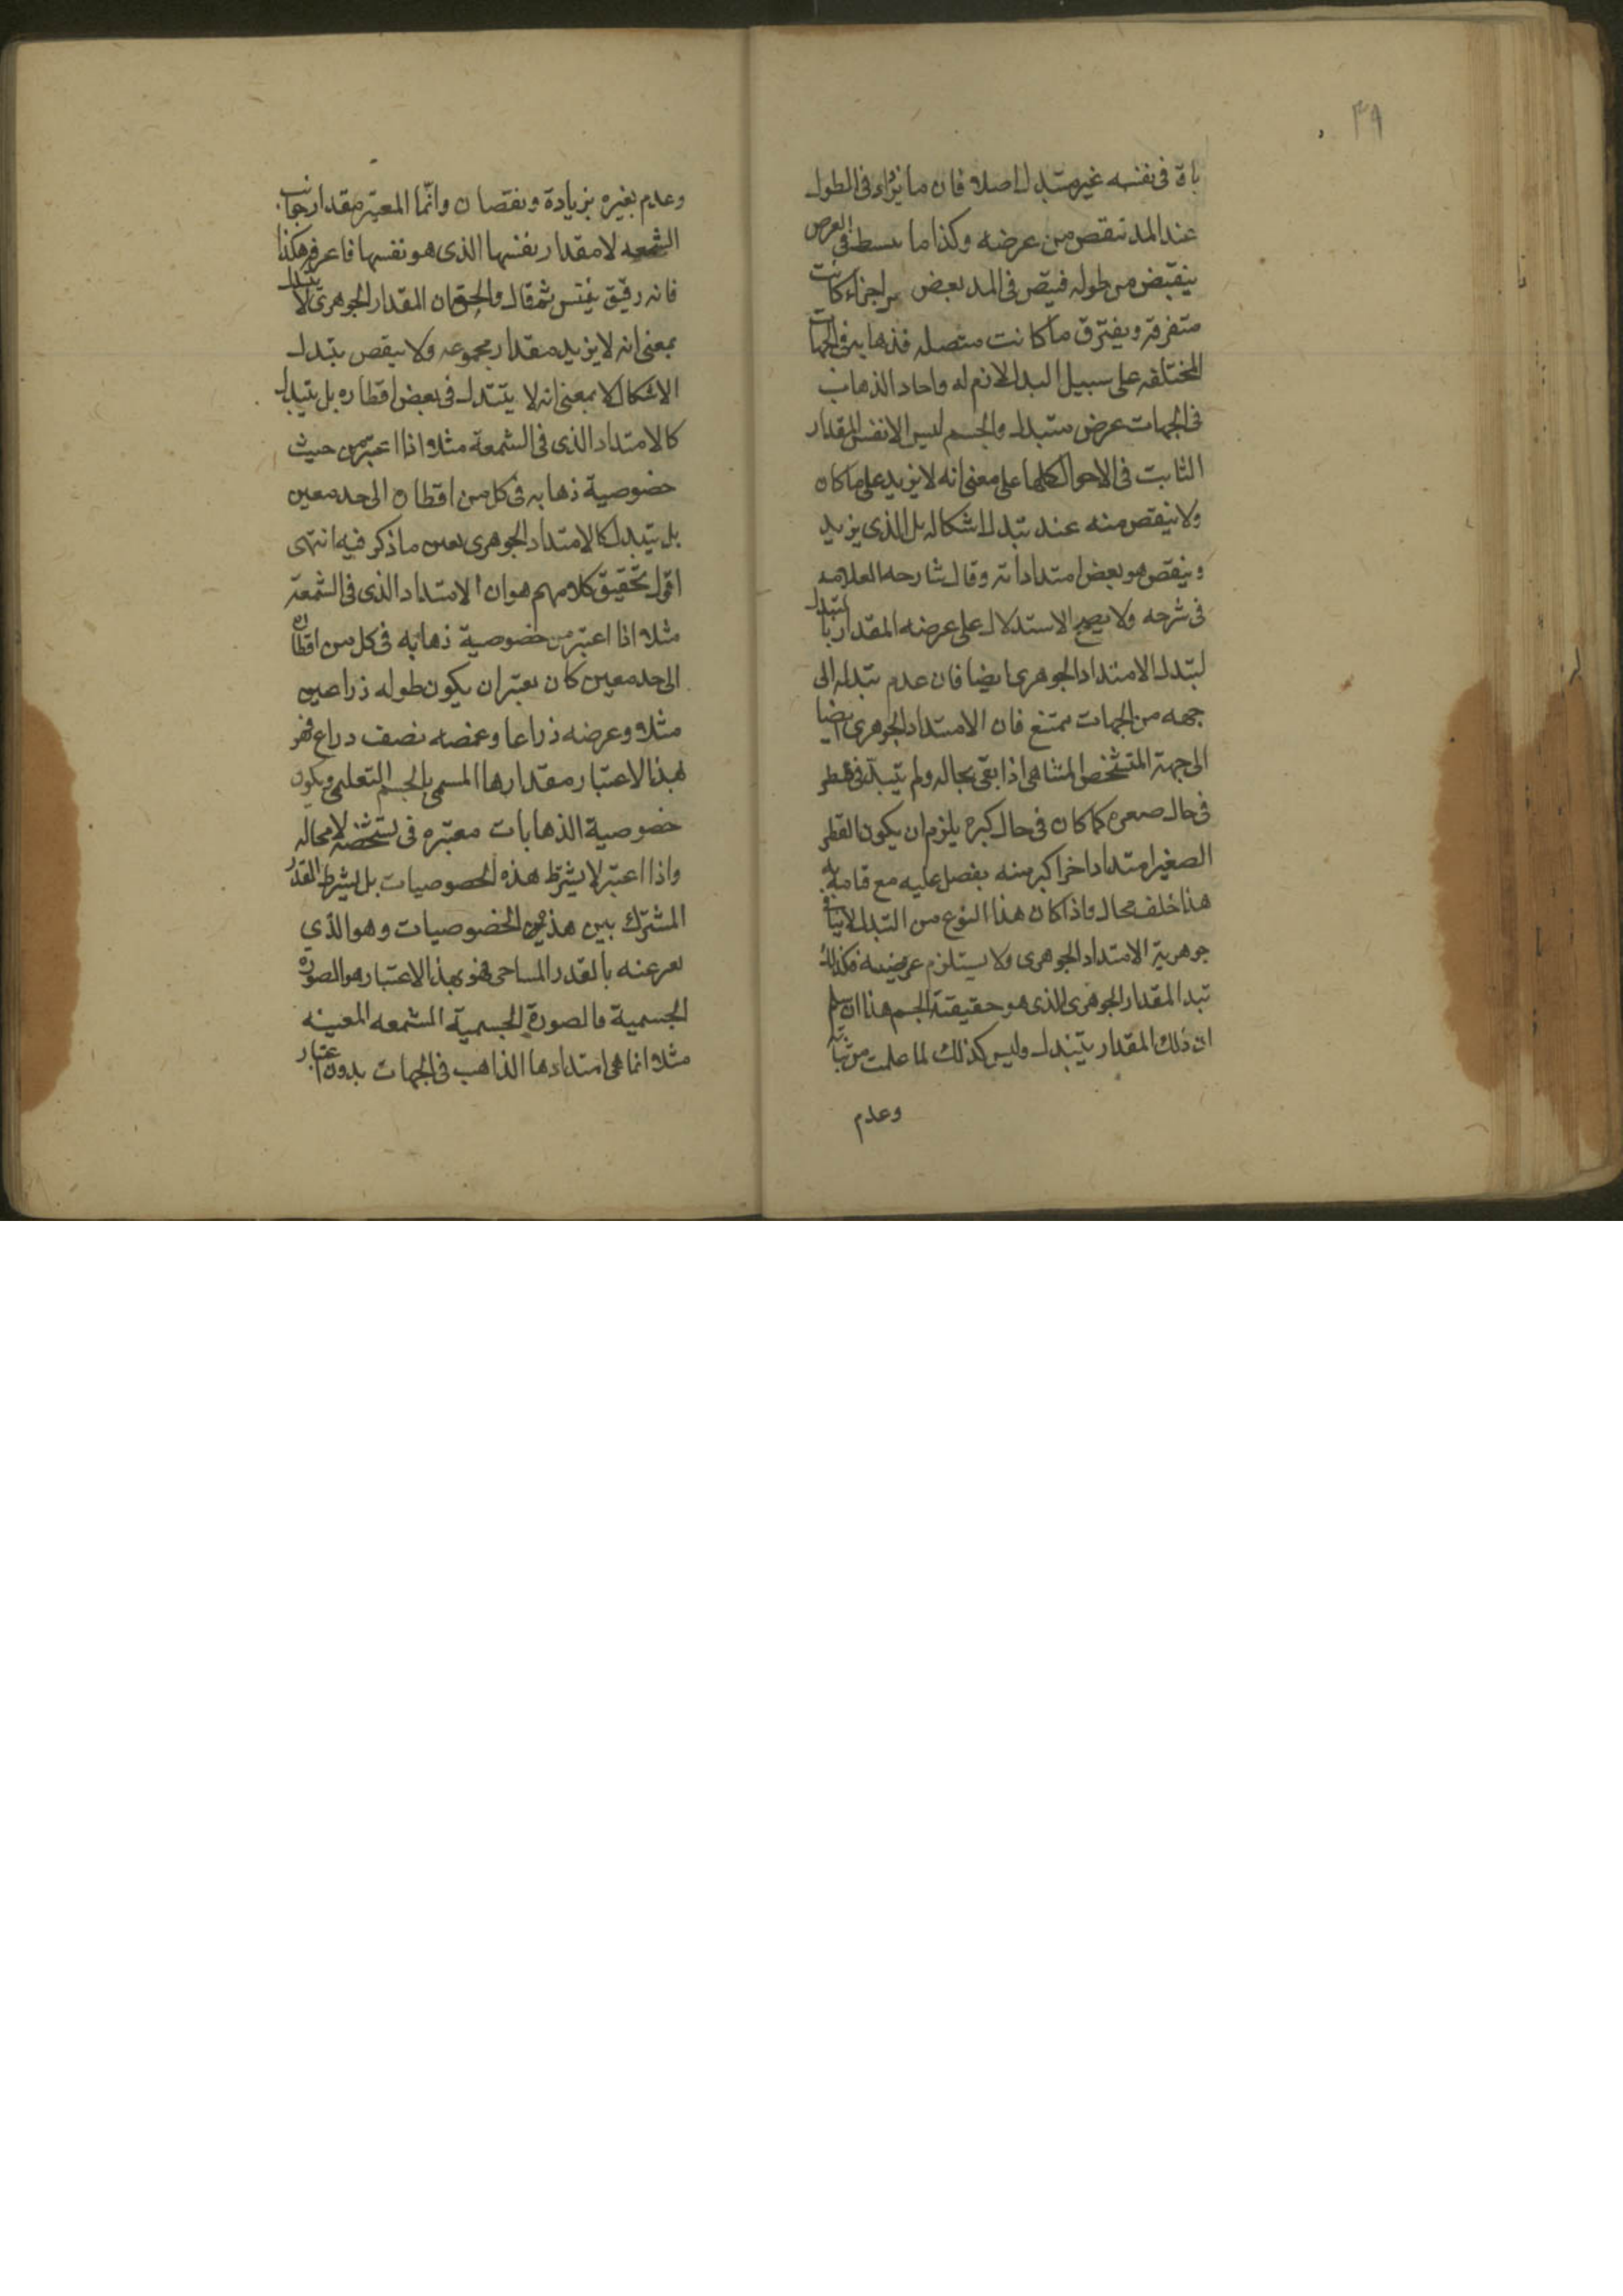 ٣٩
باق فى نفسه غير متبدل اصلا فان ما يزاد فى الطول
عند المد ينقص من عرضه وكذا ما ينبسط فى العرض
ينقبض من طوله فيتص فى المد بعض اجزاء كانت
متفرقة ويفترق ما كانت متصله فذهابه فى الجهات
المختلفه على سبيل البدل لازم له واحاد الذهاب
فى الجهات عرض متبدل والجسم ليس الا نفس المقدار
الثابت فى الاحوال كلها على معنى انه لا يزيد على ما كان
ولا ينقص منه عند تبدل اشكاله بل الذى يزيد
وينقص هو بعض امتداداته وقال شارحه العلامه
فى شرحه ولا يصح الاستدلال على عرضه المقدار بالتبدل
لتبدل الامتداد الجوهرى ايضا فان عدم تبدله الى
جهه من الجهات ممتنع فان الامتداد الجوهرى ايضا
الى جهة المتشخص المتناهى اذا بقى بحاله ولم يتبدل فى قطر
فى حال صغره كما كان فى حال كبره يلزم ان يكون القطر
الصغير امتدادا اخر اكبر منه يفصل عليه مع قيامه به
هذا خلف محال واذا كان هذا النوع من التبدل لا ينافى
جوهرية الامتداد الجوهرى ولا يستلزم عرضيه فكذلك
تبدل المقدار الجوهرى الذى هو حقيقة الجسم هذا ان سلم
ان ذلك المقدار يتبدل وليس كذلك لما علمت من ثباته
وعدم
وعدم تغيره بزيادة ونقصان وانّما المعيّر مقدار جوانب
الشمعه لا مقدار نفسها الذى هو نفسها فاعرفه هكذا
فانه دقيق نفيس ثم قال والحق ان المقدار الجوهرى لا يتبدل
بمعنى انه لا يزيد مقدار مجموعه ولا ينقص بتبدل
الاشكال لا بمعنى انه لا يتبدل فى بعض اقطاره بل يتبدل
كالامتداد الذى فى الشمعة مثلا اذا اعتبر من حيث
خصوصية ذهابه فى كل من اقطار الى حد معين
بل يتبدل كالامتداد الجوهرى بعين ما ذكر فيه انتهى
اقول تحقيق كلامهم هو ان الامتداد الذى فى الشمعة
مثلا اذا اعتبر من خصوصية ذهابه فى كل من اقطاره
الى حد معين كان يعتبر ان يكون طوله ذراعين
مثلا وعرضه ذراعا وعمقه نصف دراع فهو
بهذا الاعتبار مقدارها المسمى بالجسم التعليمى ويكون
خصوصية الذهابات معتبره فى تشخصه لا محاله
واذا اعتبر لا بشرط هذه الخصوصيات بل بشرط القدر
المشترك بين هذه الخصوصيات وهو الذي
يعبر عنه بالقدر المساحى فهو بهذا الاعتبار هو الصورة
الجسمية فالصورة الجسمية الشمعه المعينه
مثلا انما هى امتدادها الذاهب فى الجهات بدون اعتبار